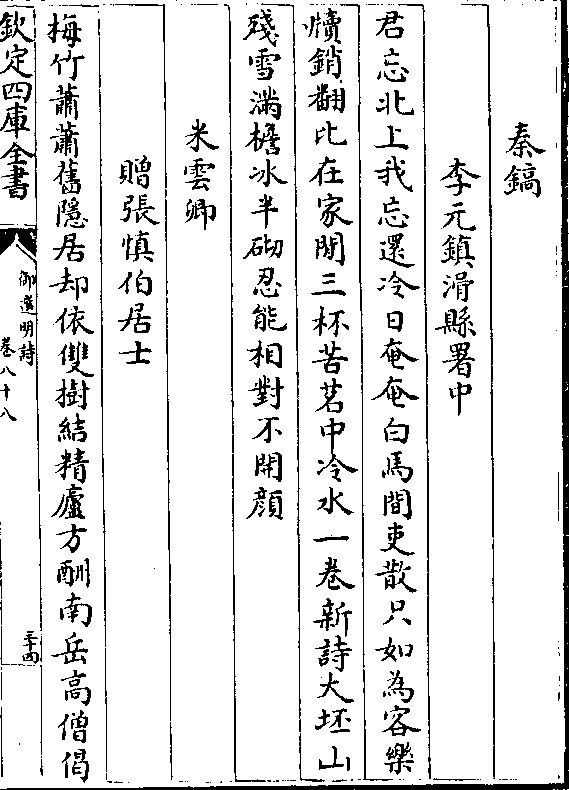 秦鎬
李元鎮滑縣署中
君忘北上我忘還冷日奄奄白馬間吏散只如為客樂
牘銷翻比在家閒三杯苦茗中冷水一卷新詩大坯山
殘雪滿檐冰半砌忍能相對不開顔
米雲卿
贈張慎伯居士
梅竹蕭蕭舊隱居却依雙樹結精廬方酬南岳高僧偈
欽定四庫全書
御選明詩
卷八十八
三十四